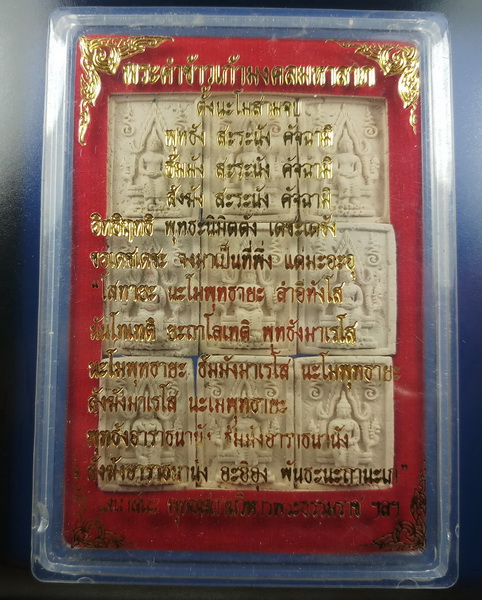 พระคำข้าวเก้ามงคลมหาลาภ
ตั้งนะโมสามจบ
พุทธัง สะระนัง คัจฉามิ
ธัมมัง สะระนัง คัจฉามิ
สังฆัง สะระนัง คัจฉามิ
อิทธิฤทธิ พุทธะนิมิตตัง เดชะเดชัง
ขอเดชเดชะ จงมาเป็นที่พึ่ง แด่มะอะอุ
"โสทายะ นะโมพุทธายะ ลำอิทังโส
นันโทเทติ ยะถาโลเทติ พุทธังมาเรโส
นะโมพุทธายะ ธัมมังมาเรโส นะโมพุทธายะ
สังฆังมาเรโส นะโมพุทธายะ
พุทธังอาราธนานัง ธัมมังอาราธนานัง
สังฆังอาราธนานัง พันธะนะ"